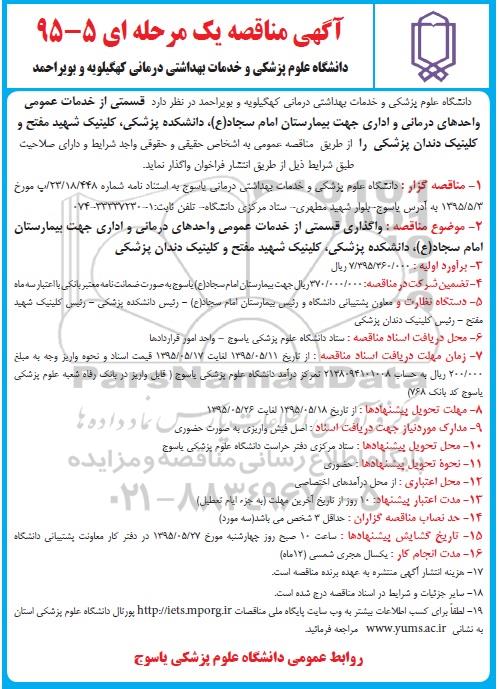 آگهی مناقصه یک مرحله ای ۵-۹۵
دانشگاه علوم پزشکی و خدمات بهداشتی درمانی کهگیلویه و بویراحمد
دانشگاه علوم پزشکی و خدمات بهداشتی درمانی کهگیلویه و بویراحمد در نظر دارد قسمتی از خدمات عمومی
واحدهای درمانی و اداری جهت بیمارستان امام سجاد(ع)، دانشکده پزشکی، کلینیک شهید مفتح و
کلینیک دندان پزشکی را از طریق مناقصه عمومی به اشخاص حقیقی و حقوقی واجد شرایط و دارای صلاحیت
طبق شرایط ذیل از طریق انتشار فراخوان واگذار نماید.
۱- مناقصه گزار : دانشگاه علوم پزشکی و خدمات بهداشتی درمانی یاسوج به استناد نامه شماره ۲۳/۱۸/۴۴۸/پ مورخ
۱۳۹۵/۵/۳ به آدرس یاسوج-بلوار شهید مطهری- ستاد مرکزی دانشگاه- تلفن ثابت:۱-۳۳۳۳۷۲۳۰-۰۷۴
۲- موضوع مناقصه : واگذاری قسمتی از خدمات عمومی واحدهای درمانی و اداری جهت بیمارستان
امام سجاد(ع)، دانشکده پزشکی، کلینیک شهید مفتح و کلینیک دندان پزشکی
۳- برآورد اولیه : ۷/۳۹۵/۳۶۰/۰۰۰ ریال
۴- تضمین شرکت درمناقصه: ۳۷۰/۰۰۰/۰۰۰ریال جهت بیمارستان امام سجاد(ع) یاسوج به صورت ضمانت نامه معتبربانکی بااعتبارسه ماه
۵- دستگاه نظارت و معاون پشتیبانی دانشگاه و رئیس بیمارستان امام سجاد(ع) – رئیس دانشکده پزشکی – رئیس کلینیک شهید
مفتح – رئیس کلینیک دندان پزشکی
۶- محل دریافت اسناد مناقصه : ستاد دانشگاه علوم پزشکی یاسوج – واحد امور قراردادها
۷- زمان مهلت دریافت اسناد مناقصه : از تاریخ ۱۳۹۵/۰۵/۱۱ لغایت ۱۳۹۵/۰۵/۱۷ قیمت اسناد و نحوه واریز وجه به مبلغ
۲۰۰/۰۰۰ ریال به حساب ۲۱۳۸۰۹۴۱۰۱۰۰۸ تمرکز درآمد دانشگاه علوم پزشکی یاسوج ( قابل واریز در بانک رفاه شعبه علوم پزشکی
یاسوج کد بانک ۷۶۸)
۸- مهلت تحویل پیشنهادها : از تاریخ ۱۳۹۵/۰۵/۱۸ لغایت ۱۳۹۵/۰۵/۲۶
۹- مدارک موردنیاز جهت دریافت اسناد : اصل فیش واریزی به صورت حضوری
۱۰- محل تحویل پیشنهادها : ستاد مرکزی دفتر حراست دانشگاه علوم پزشکی یاسوج
۱۱- نحوۀ تحویل پیشنهادها : حضوری
۱۲- محل اعتباری : از محل درآمدهای اختصاصی
۱۳- مدت اعتبار پیشنهاد: ۱۰ روز از تاریخ آخرین مهلت (به جزء ایام تعطیل)
۱۴- حد نصاب مناقصه گزاران : حداقل ۳ شخص می باشد(سه مورد)
۱۵- تاریخ گشایش پیشنهادها : ساعت ۱۰ صبح روز چهارشنبه مورخ ۱۳۹۵/۰۵/۲۷ در دفتر کار معاونت پشتیبانی دانشگاه
۱۶- مدت انجام کار : یکسال هجری شمسی (۱۲ماه)
۱۷- هزینه انتشار آگهی منتشره به عهده برنده مناقصه است.
۱۸- سایر جزئیات و شرایط در اسناد مناقصه درج شده است.
۱۹- لطفاً برای کسب اطلاعات بیشتر به وب سایت پایگاه ملی مناقصات http://iets.mporg.ir پورتال دانشگاه علوم پزشکی استان
به نشانی www.yums.ac.ir مراجعه فرمائید.
روابط عمومی دانشگاه علوم پزشکی یاسوج